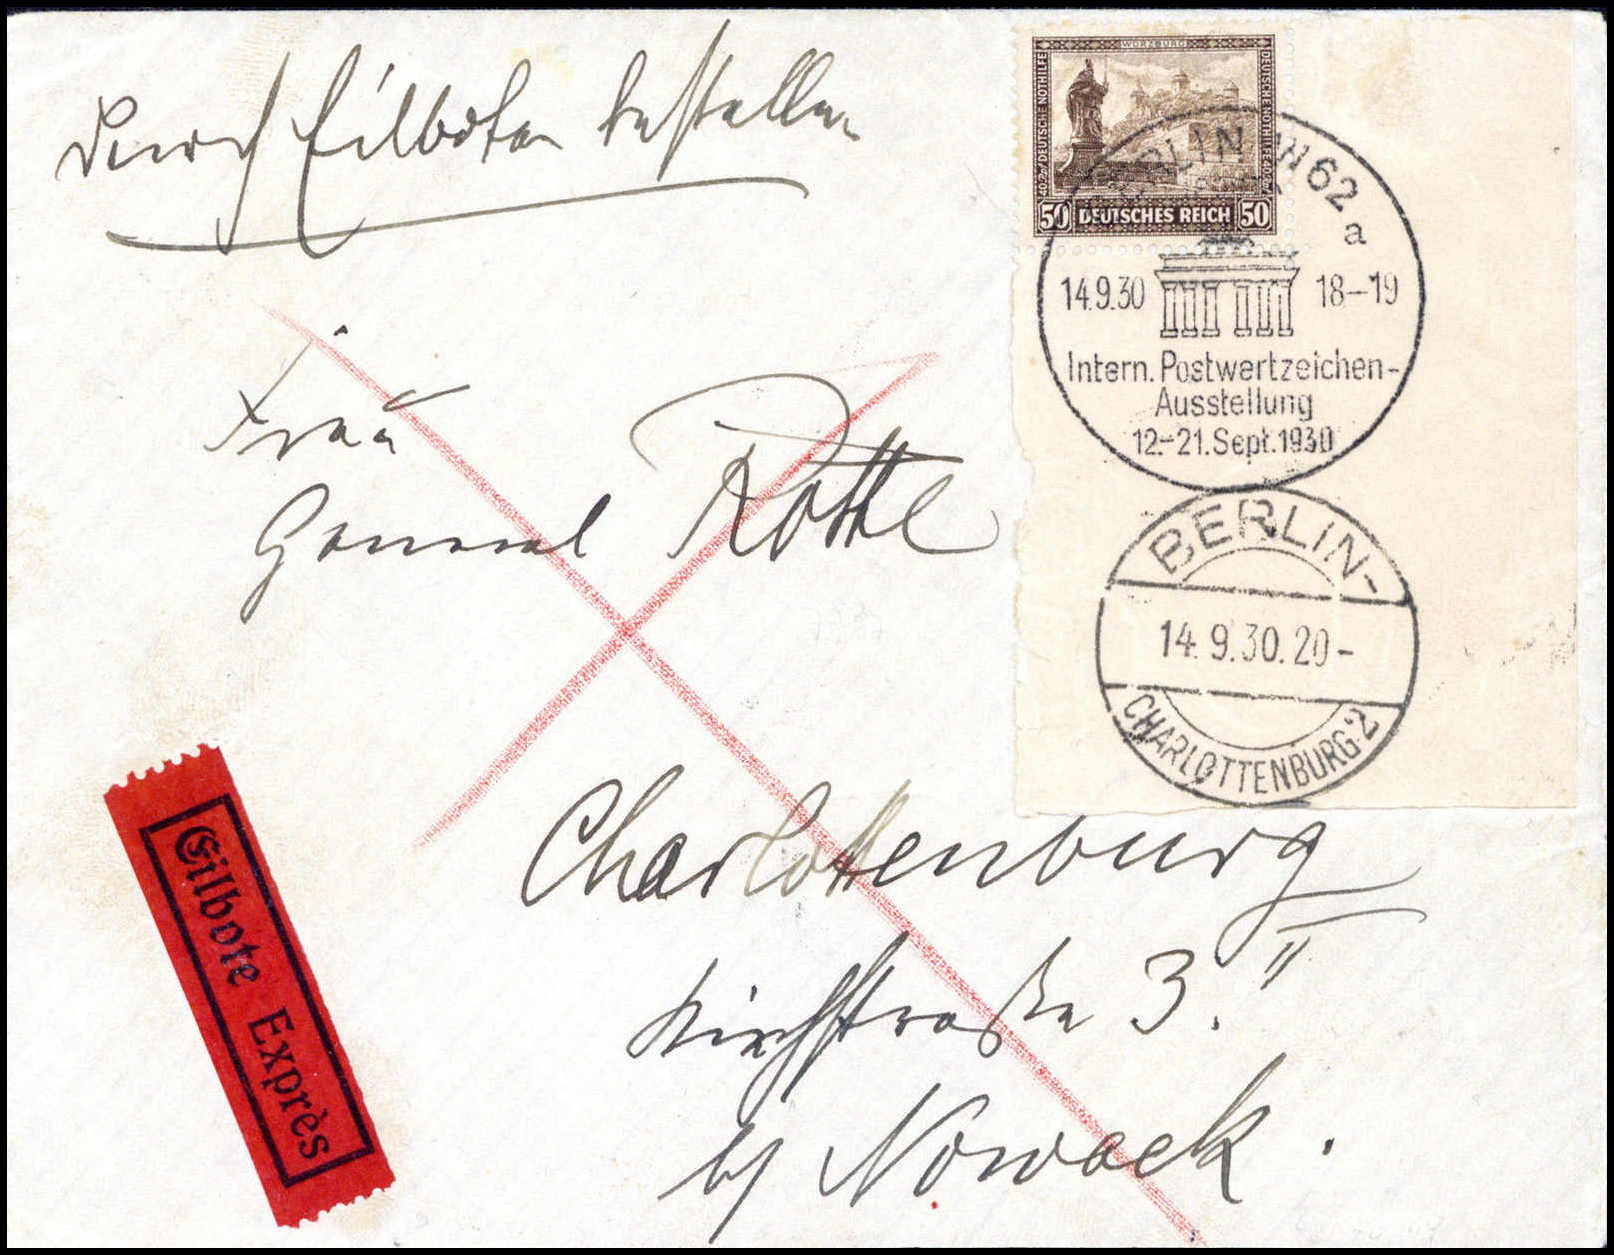 Durch Eilboten bestellen
WÜRZBURG
40+20 DEUTSCHE NOTHILFE
DEUTSCHE NOTHILFE 40+20
50 DEUTSCHES REICH 50
BERLIN W 62
a
14.9.30 18-19
Intern. Postwertzeichen-
Ausstellung
12.-21. Sept. 1930
BERLIN-
14.9.30.20-
CHARLOTTENBURG 2
Frau
General Rothe
Charlottenburg
Kirchstraße 3. II
b/ Nowack.
Eilbote Exprès